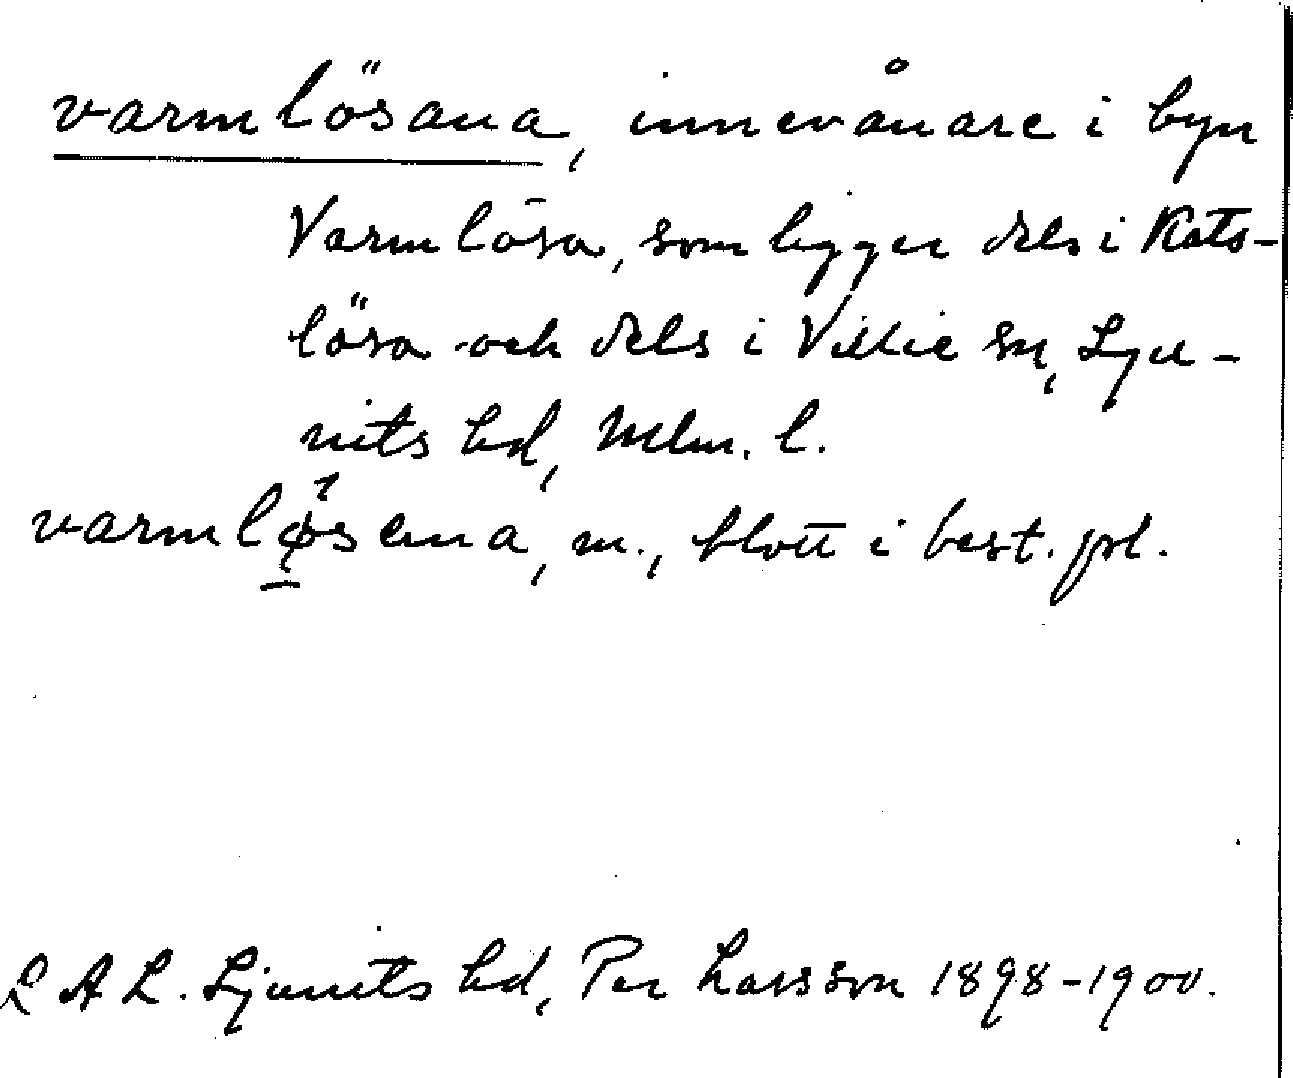 varmlösana, innevånare i byn
Varmlösa, som ligger dels i Kats-
lösa och dels i Villie sn, Lju-
nits hd, Mlm. l.
varmløsana, m., blott i best. pl.
L A L. Ljunits hd, Per Larsson 1898-1900.